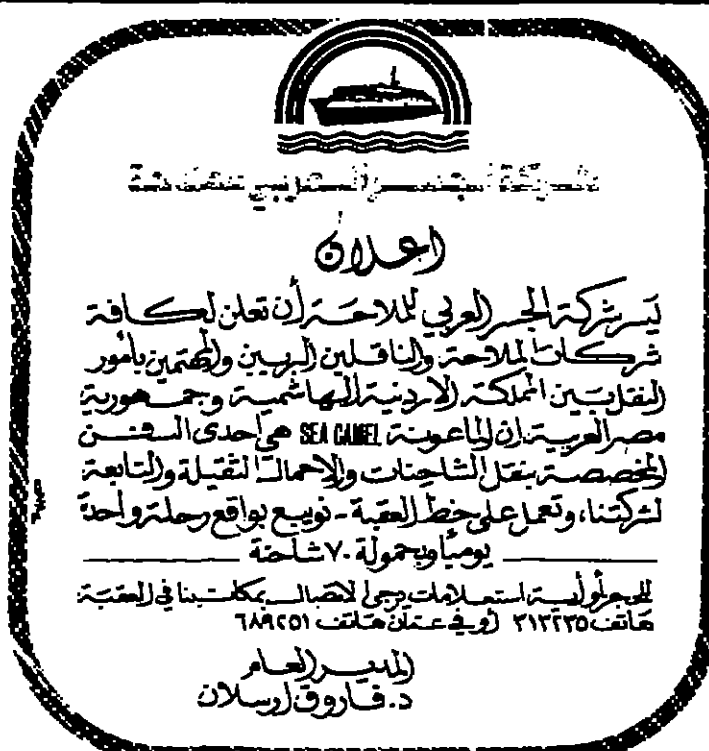 شركة الجسر العربي للملاحة
اعلان
يسر شركة الجسر العربي للملاحة أن تعلن لكافة
شركات الملاحة والناقلين البريين والمهتمين بأمور
النقل بين المملكة الاردنية الهاشمية وجمهورية
مصر العربية ان الماعونة SEA CAMEL هي احدى السفن
المخصصة بنقل الشاحنات والاحمال الثقيلة والتابعة
لشركتنا، وتعمل على خط العقبة - نويبع بواقع رحلة واحدة
يومياً وبحمولة ٧٠ شاحنة
للحجز أو أية استعلامات يرجى الاتصال بمكاتبنا في العقبة
هاتف ٣١٣٢٣٥ أو في عمان هاتف ٦٨٩٢٥١
المدير العام
د. فاروق ارسلان